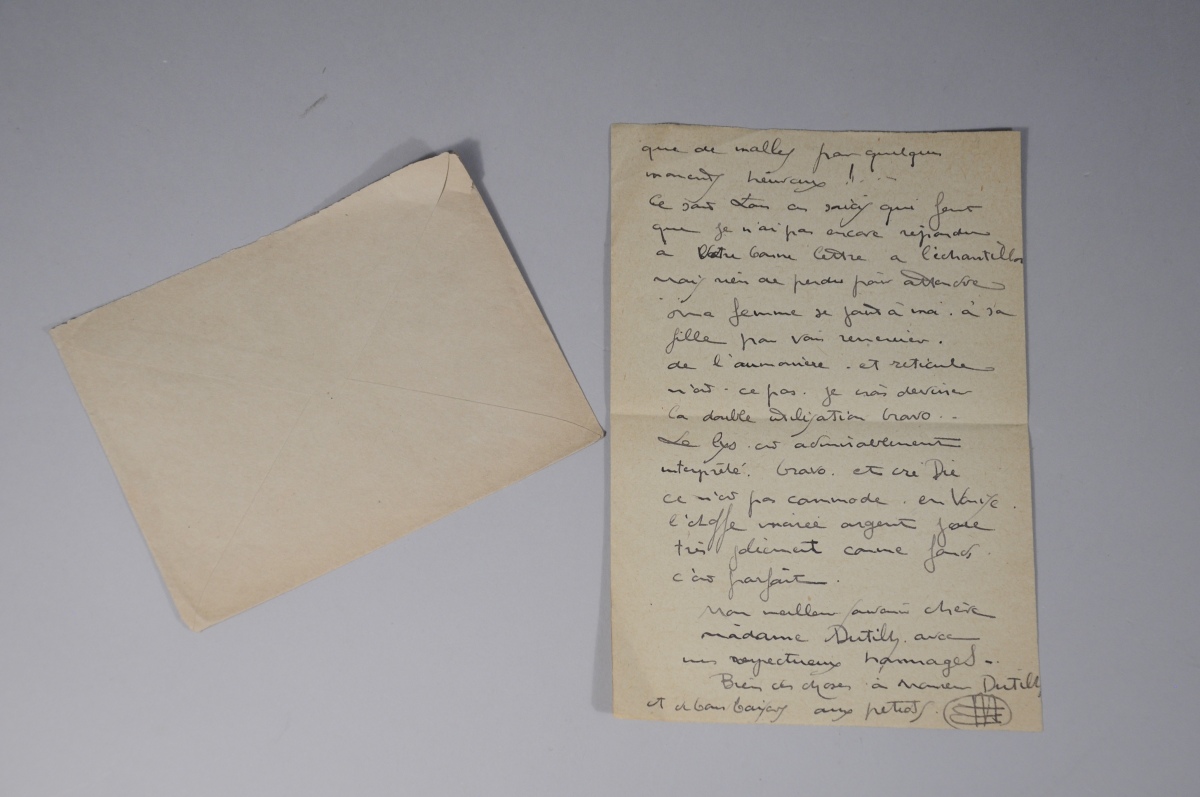 que de mally par quelques
moments heureux !! ...
Ce sont tous ces soucis qui font
que je n'ai pas encore répondu
a Votre bonne lettre a l'échantillon
mais rien de perdu pour attendre
ma femme se joint à moi . à sa
fille pour vous remercier .
de l'aumonière . et reticule
n'est . ce pas . je crois deviner
la double utilisation bravo ..
Le lys est admirablement
interprété . bravo . et
ce n'est pas commode . en
l'étoffe moirée argent joue
très joliment comme fonds .
c'est parfait .
Mon meilleur souvenir chère
madame Dutilly . avec
mes respectueux hommages ..
Bien des choses à Monsieur Dutilly
et de bons baisers aux petiots .